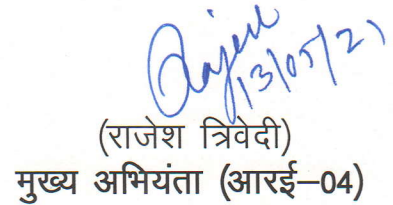 Rajesh
13/05/21
(राजेश त्रिवेदी)
मुख्य अभियंता (आरई–04)